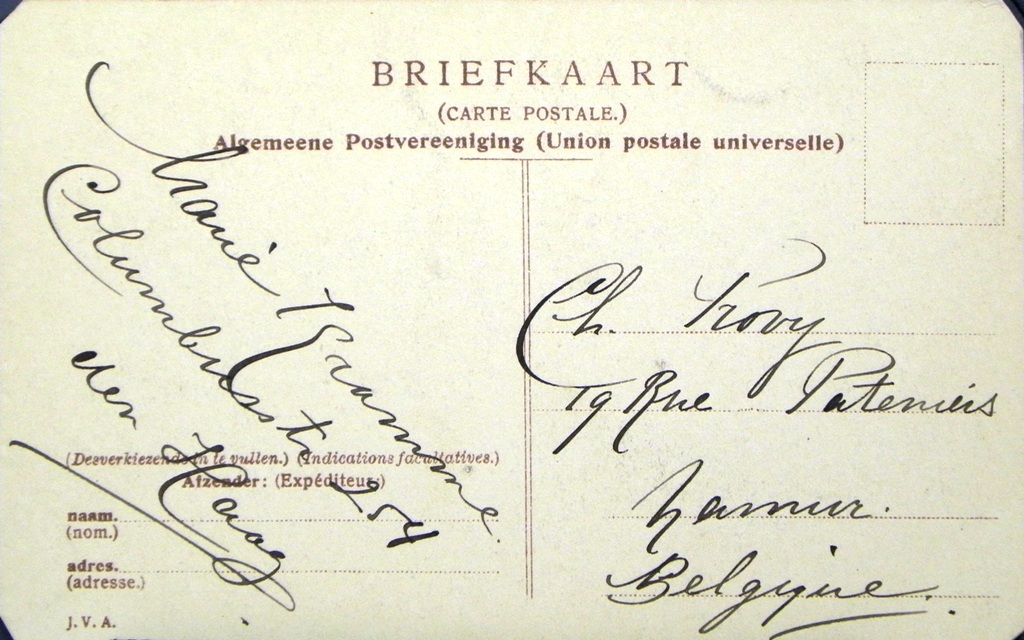 BRIEFKAART
(CARTE POSTALE.)
Algemeene Postvereeniging (Union postale universelle)
Marie Kramme.
Columbusstr 254
den Haag
(Desverkiezende in te vullen.) (Indications facultatives.)
Afzender: (Expéditeur:)
naam.
(nom.)
adres.
(adresse.)
J. V. A.
Ch. Trovy
19 Rue Pateniers
Namur.
Belgique.